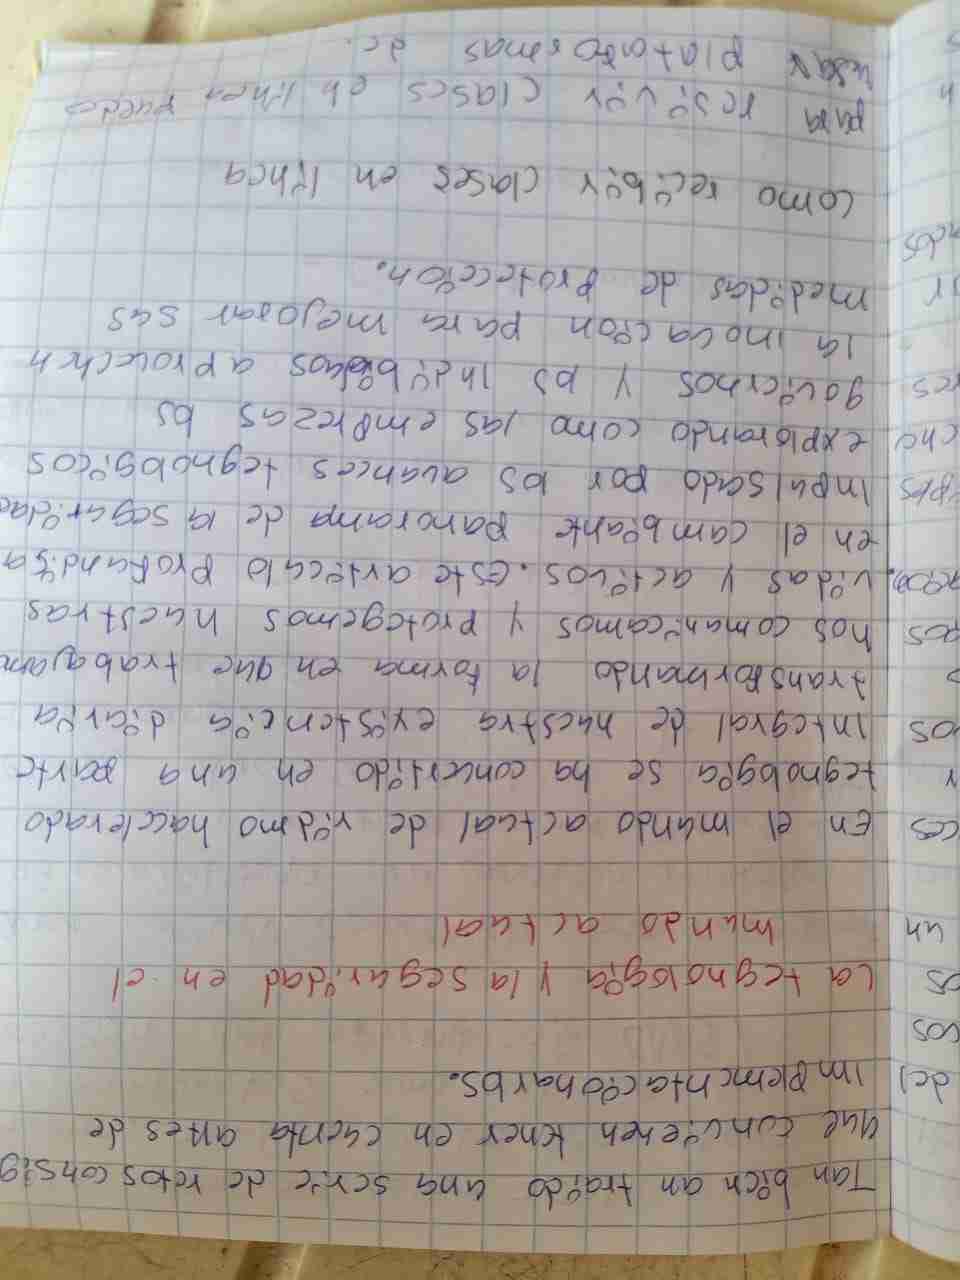 Tan bien an traido una serie de retos consig
que conviene​n tener en cuenta antes de
implementacionarlos.
La tegnologia y la seguridad en el
mundo actual
En el mundo actual de ridmo haccelerado
tegnologia se ha concertido en una parte
integral de nuestra existencia diaria
transformando la forma en que trabajam
nos comunicamos y protegemos nuestras
vidas y activos. Este arteculo profundiza
en el cambiante panorama de la seguridad
inpulsado por los avances tegnologicos
explorando como las emprezas los
goviernos y los indibiduos aprovechen
la inovacion para mejorar sus
medidas de proteccion.
como recibir clases en linea
para resivir clases en linea puedes
usar plataformas de
del
cos
os
un
ces
r
os
pos
ncos
ir
n
s